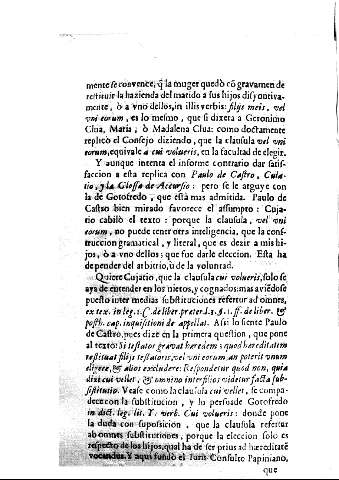 mente se convence, q̃ la muger quedò cõ gravamen de
restituir la hazienda del marido a sus hijos disjuntiva-
mente, ò a vno dellos, in illis verbis: filijs meis, vel
vni eorum, es lo mesmo, que si dixera a Geronimo
Clua, Maria, ò Madalena Clua: como doctamente
replicò el Consejo diziendo, que la clausula vel vni
eorum, equivale a cui volueris, en la facultad de elegir.
Y aunque intenta el informe contrario dar satis-
faccion a esta replica con Paulo de Castro, Cuia-
tio, y la Glossa de Accursio: pero se le arguye con
la de Gotofredo, que està mas admitida. Paulo de
Castro bien mirado favorece el assumpto: Cuja-
rio cabilò el texto: porque la clausula, vel vni
eorum, no puede tener otra inteligencia, que la cons-
truccion gramatical, y literal, que es dezir a mis hi-
jos, ò a vno dellos: que fue darle eleccion. Esta ha
de pender del arbitrio, ù de la voluntad.
Quiere Cujatio, que la clausula cui volueris, solo se
aya de entender en los nietos, y cognados: mas aviédose
puesto inter medias substitutiones refertur ad omnes,
ex tex. in leg. 1. ff. de liber. præter. l. 3. §. 1. ff. de liber. &
posth. cap. inquisitioni de appellat. Assi lo siente Paulo
de Castro, pues dize en la primera question, que pone
al texto: Si testator gravat hæredem: quod hæreditatem
restituat filijs testatoris, vel vni eorum an poterit vnum
eligere, & alios excludere: Respondetur quod non, quia
dixit cui vellet, & omnino inter filios videtur facta sub-
stitutio. Vease como la clausula cui vellet, se compa-
dece con la substitucion, y la persuade Gotofredo
in dict. leg. lit. Y. verb. Cui volueris: donde pone
la duda con suposicion, que la clausula refertur
ab omnes substitutiones, porque la eleccion solo es
respecto de los hijos, qual ha de ser prius ad hæreditatē
vocandus. Y aqui fundò el Juris Consulto Papiniano,
que